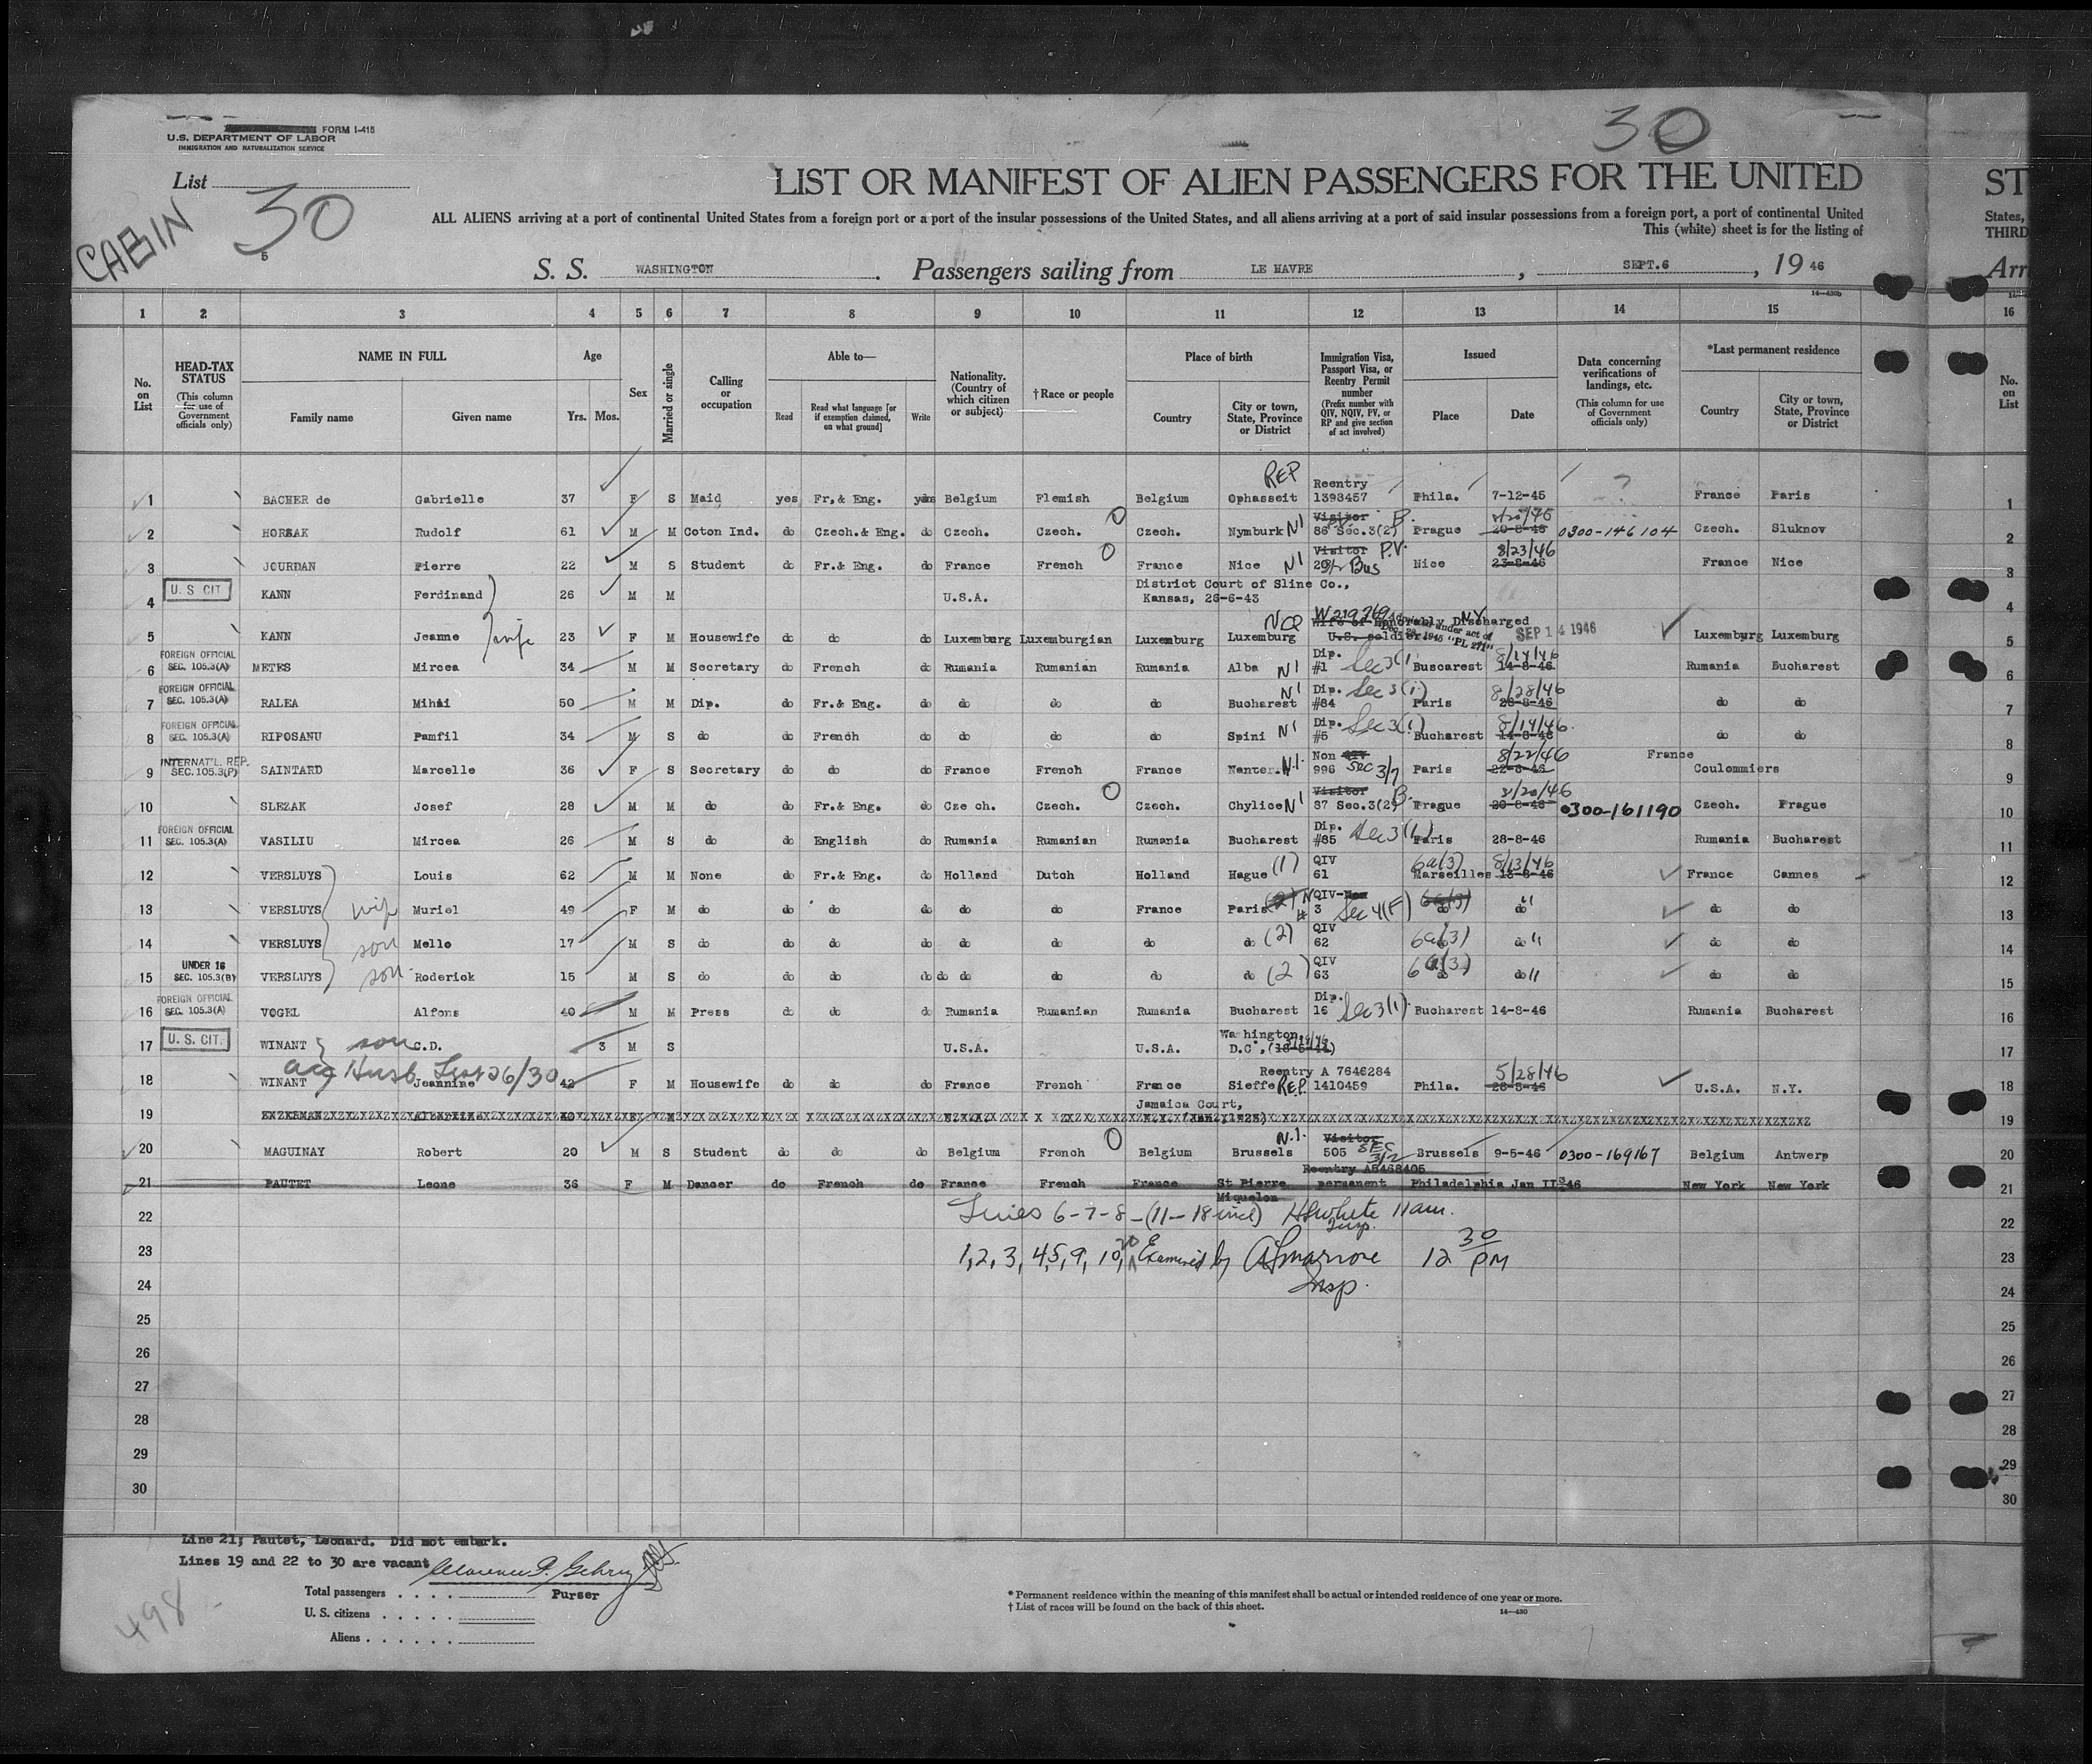 30
FORM I-415
U.S. DEPARTMENT OF LABOR
IMMIGRATION AND NATURALIZATION SERVICE
List
30
CABIN
5
LIST OR MANIFEST OF ALIEN PASSENGERS FOR THE UNITED ST
ALL ALIENS arriving at a port of continental United States from a foreign port or a port of the insular possessions of the United States, and all aliens arriving at a port of said insular possessions from a foreign port, a port of continental United States,
This (white) sheet is for the listing of THIRD
S. S. WASHINGTON. Passengers sailing from LE HAVRE, SEPT.6, 19 46 Arr
14—430b
1 2 3 4 5 6 7 8 9 10 11 12 13 14 15 16
No. on List
HEAD-TAX STATUS (This column for use of Government officials only)
NAME IN FULL Family name Given name
Age Yrs. Mos.
Sex
Married or single
Calling or occupation
Able to— Read Read what language [or if exemption claimed, on what ground] Write
Nationality. (Country of which citizen or subject)
†Race or people
Place of birth Country City or town, State, Province or District
Immigration Visa, Passport Visa, or Reentry Permit number (Prefix number with QIV, NQIV, PV, or RP and give section of act involved)
Issued Place Date
Data concerning verifications of landings, etc. (This column for use of Government officials only)
*Last permanent residence Country City or town, State, Province or District
No. on List
1 BACHER de Gabrielle 37 F S Maid yes Fr,& Eng. yes Belgium Flemish Belgium Ophasseit REP Reentry 1393457 Phila. 7-12-45 ? France Paris 1
2 HORSAK Rudolf 61 M M Coton Ind. do Czech.& Eng. do Czech. Czech. 0 Czech. Nymburk N1 Visitor B. 86 Sec.3(2) Prague 20-8-46 0300-146104 Czech. Sluknov 2
3 JOURDAN Pierre 22 M S Student do Fr.& Eng. do France French 0 France Nice N1 Visitor P.V. 3/2 Bus Nice 8/23/46 23-8-46 France Nice 3
4 U. S CIT KANN Ferdinand 26 M M U.S.A. District Court of Sline Co., Kansas, 26-6-43 4
5 KANN Jeanne wife 23 F M Housewife do do do Luxemburg Luxemburgian Luxemburg Luxemburg NCQ W219769 Wife of Honorably Discharged U.S. soldier under act of Dec. 28, 1945 "PL 271" NY SEP 14 1946 Luxemburg Luxemburg 5
6 FOREIGN OFFICIAL SEC. 105.3(A) METES Mircea 34 M M Secretary do French do Rumania Rumanian Rumania Alba N1 Dip. #1 Sec 3(1) Buscarest 8/14/46 14-8-46 Rumania Bucharest 6
7 FOREIGN OFFICIAL SEC. 105.3(A) RALEA Mihai 50 M M Dip. do Fr.& Eng. do do do do Bucharest N1 Dip. #84 Sec 3(1) Paris 8/28/46 28-8-46 do do 7
8 FOREIGN OFFICIAL SEC. 105.3(A) RIPOSANU Pamfil 34 M S do do French do do do do Spini N1 Dip. #5 Sec 3(1) Bucharest 8/14/46. 14-8-46 do do 8
9 INTERNAT'L. REP. SEC.105.3(P) SAINTARD Marcelle 36 F S Secretary do do do France French France Nanter. N.1. Non QIV 996 SEC 3/7 Paris 8/22/46 22-8-46 France Coulommiers 9
10 SLEZAK Josef 28 M M do do Fr.& Eng. do Cze ch. Czech. 0 Czech. Chylice N1 Visitor B. 87 Sec.3(2) Prague 20-8-46 0300-161190 Czech. Prague 10
11 FOREIGN OFFICIAL SEC. 105.3(A) VASILIU Mircea 26 M S do do English do Rumania Rumanian Rumania Bucharest Dip. #85 Sec 3(1) Paris 28-8-46 Rumania Bucharest 11
12 VERSLUYS Louis 62 M M None do Fr.& Eng. do Holland Dutch Holland Hague (1) QIV 61 6a(3) Marseilles 8/13/46 13-8-46 France Cannes 12
13 VERSLUYS wife Muriel 49 F M do do do do do do France Paris (2) N QIV-Non 3 Sec 4(F) 6a(3) do do " do do 13
14 VERSLUYS son Mello 17 M S do do do do do do do do (2) QIV 62 6a(3) do do " do do 14
15 UNDER 16 SEC. 105.3(B) VERSLUYS son Roderick 15 M S do do do do do do do do (2) QIV 63 6a(3) do do " do do 15
16 FOREIGN OFFICIAL SEC. 105.3(A) VOGEL Alfons 40 M M Press do do do Rumania Rumanian Rumania Bucharest Dip. 16 Sec 3(1) Bucharest 14-8-46 Rumania Bucharest 16
17 U. S. CIT. WINANT son C.D. 3 M S U.S.A. U.S.A. Wa hington D.C., 17
acc Husb List 26/30
18 WINANT Jeannine 42 F M Housewife do do do France French France Sieffe REP. Reentry A 7646284 1410459 Phila. 5/28/46 28-5-46 U.S.A. N.Y. 18
19 Jamaica Court, 19
20 MAGUINAY Robert 20 M S Student do do do Belgium French 0 Belgium Brussels N.1. Visitor 505 SEC 3/2 Brussels 9-5-46 0300-169167 Belgium Antwerp 20
21 PAUTET Leone 36 F M Dancer do French do France French France St Pierre Miquelon Reentry A5468405 permanent Philadelphia Jan II 46 New York New York 21
22 Lines 6-7-8-(11-18 incl) HSwhite Insp. 11 am. 22
23 1,2,3, 4,5, 9, 10, 20 Examined by Insp. 12 30 PM 23
24 24
25 25
26 26
27 27
28 28
29 29
30 30
Line 21; Pautet, Leonard. Did not embark.
Lines 19 and 22 to 30 are vacant
Purser
Total passengers . . . .
U. S. citizens . . . . .
Aliens . . . . . .
498
* Permanent residence within the meaning of this manifest shall be actual or intended residence of one year or more.
† List of races will be found on the back of this sheet.
14—430